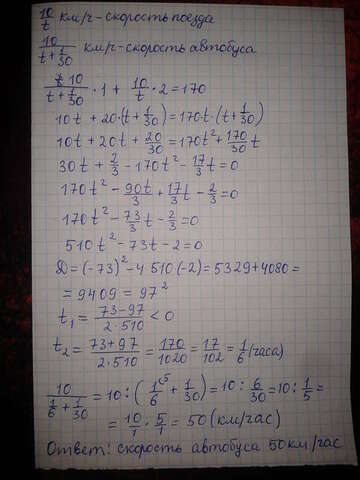 10/t км/ч-скорость поезда
10/(t+1/30) км/ч-скорость автобуса
10/(t+1/30) · 1 + 10/t · 2 = 170
10t + 20·(t+1/30) = 170·t·(t+1/30)
10t + 20t + 20/30 = 170t² + 170/30 t
30t + 2/3 - 170t² - 17/3 t = 0
170t² - 90t/3 + 17/3 t - 2/3 = 0
170t² - 73/3 t - 2/3 = 0
510t² - 73t - 2 = 0
D = (-73)² - 4·510(-2) = 5329 + 4080 =
= 9409 = 97²
t₁ = (73-97)/(2·510) < 0
t₂ = (73+97)/(2·510) = 170/1020 = 17/102 = 1/6 (часа)
10/(1/6+1/30) = 10:(1⁵/6 + 1/30) = 10: 6/30 = 10: 1/5 =
= 10/1 · 5/1 = 50 (км/час)
Ответ: скорость автобуса 50км/час